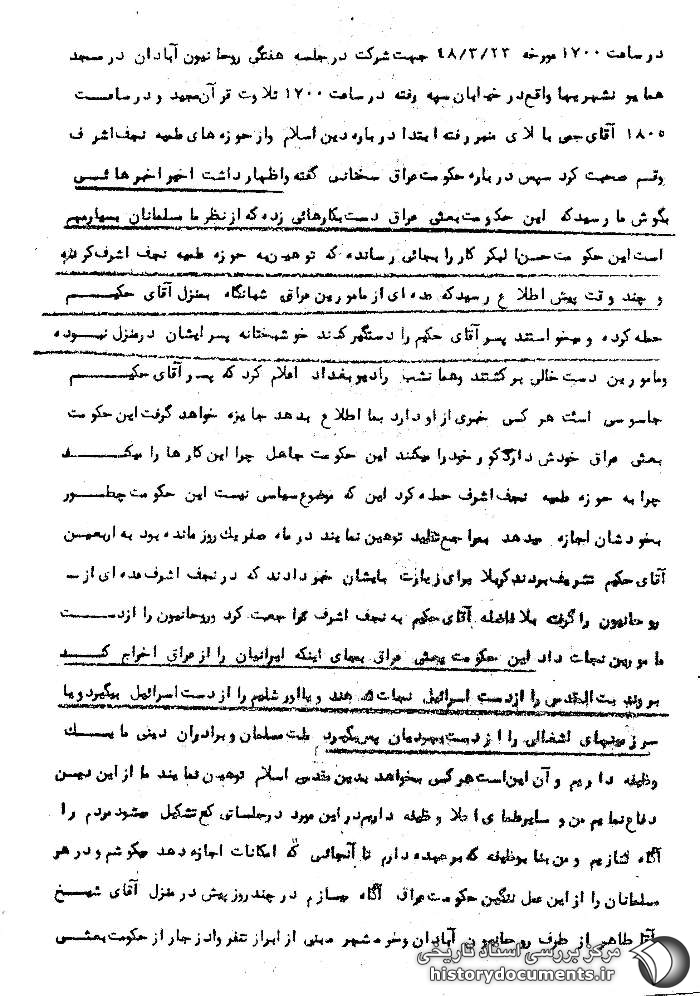 در ساعت ۱۷۰۰ مورخه ۴۸/۳/۲۳ جهت شرکت در جلسه هفتگی روحانیون آبادان در مسجد
همایونشهریها واقع در خیابان سپه رفته در ساعت ۱۷۰۰ تلاوت قرآن مجید و در ساعت
۱۸۰۵ آقای جمی بالای منبر رفته ابتدا درباره دین اسلام و از حوزه های علمیه نجف اشرف
وقم صحبت کرد سپس درباره حکومت عراق سخنانی گفته و اظهار داشت اخیرا خبرهائی
بگوش ما رسید که این حکومت بعثی عراق دست بکارهائی زده که از نظر ما مسلمانان بسیار مهم
است این حکومت حسن البکر کار را بجائی رسانده که توهین به حوزه علمیه نجف اشرف کرده
و چند وقت پیش اطلاع رسید که عده ای از مامورین عراقی شبانگاه بمنزل آقای حکیم
حمله کرده و میخواستند پسر آقای حکیم را دستگیر کنند خوشبختانه پسر ایشان در منزل نبوده
ومامورین دست خالی برگشتند وهمانشب رادیو بغداد اعلام کرد که پسر آقای حکیم
جاسوسی است هر کس خبری از او دارد بما اطلاع بدهد جایزه خواهد گرفت این حکومت
بعثی عراق خودش دارد گور خود را میکند این حکومت جاهل چرا این کارها را میکند
چرا به حوزه علمیه نجف اشرف حمله کرد این که موضوع سیاسی نیست این حکومت چطور
بخودشان اجازه میدهد بمراجع تقلید توهین نمایند در ماه صفر یک روز مانده بود به اربعین
آقای حکیم تشریف بردند کربلا برای زیارت بایشان خبر دادند که در نجف اشرف عده ای از -
روحانیون را گرفته بلافاصله آقای حکیم به نجف اشرف مراجعت کرد و روحانیون را از دست
مامورین نجات داد این حکومت بعثی عراق بجای اینکه ایرانیان را از عراق اخراج کند
بروند بیت المقدس را از دست اسرائیل نجات دهند و یا اورشلیم را از دست اسرائیل بگیرد و یا
سرزمینهای اشغالی را از دست یهودیان پس بگیرد ملت مسلمان و برادران دینی ما یک
وظیفه داریم و آن این است هر کس بخواهد بدین مقدس اسلام توهین نمایند ما از این دین
دفاع نمایم من و سایر علمای اعلا وظیفه داریم در این مورد در جلساتی که تشکیل میشود مردم را
آگاه سازیم و من بنا بوظیفه که برعهده دارم تا آنجائی که امکانات اجازه دهد میکوشم و در هر
مسلمانان را از این عمل ننگین حکومت عراق آگاه میسازم در چند روز پیش در منزل آقای شیخ
آقا طاهر از طرف روحانیون آبادان وخرمشهر مبنی از ابراز تنفر وانزجار از حکومت بعثی
مرکز بررسی اسناد تاریخی
historydocuments.ir